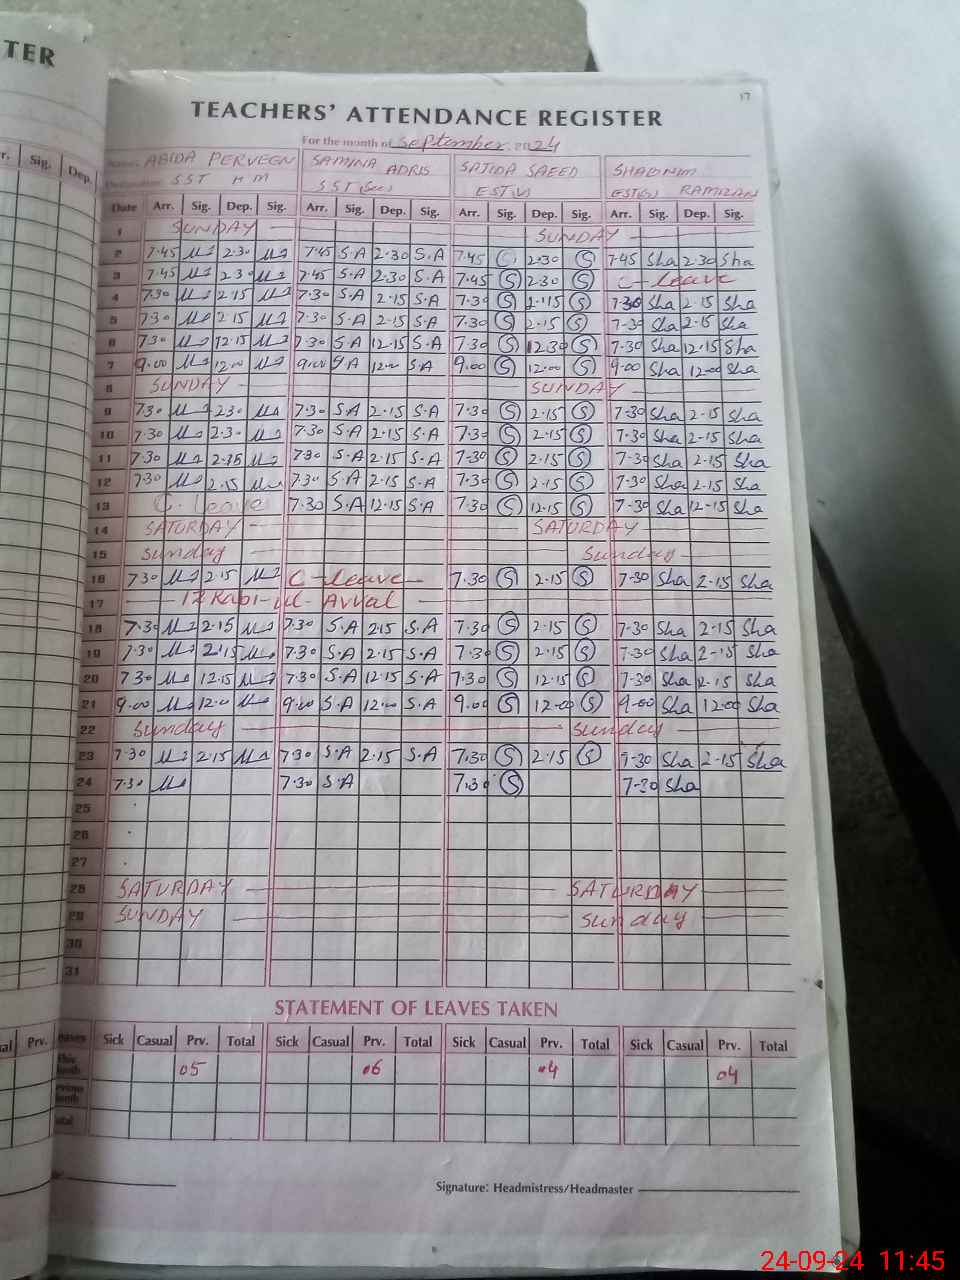 TER
17
TEACHERS' ATTENDANCE REGISTER
For the month of September 2024
Name: ABIDA PERVEEN SAMINA ADRIS SAJIDA SAEED SHABNIM RAMIZAN
SST H M SST (Sec) EST (V) EST(G)
r. Sig. Dep.
Date Arr. Sig. Dep. Sig. Arr. Sig. Dep. Sig. Arr. Sig. Dep. Sig. Arr. Sig. Dep. Sig.
1 SUNDAY SUNDAY
2 7.45 2.30 7.45 S.A 2.30 S.A 7.45 2.30 S 7.45 Sha 2.30 Sha
3 7.45 2.30 7.45 S.A 2.30 S.A 7.45 S 2.30 S C-leave
4 7.30 2.15 7.30 S.A 2.15 S.A 7.30 S 2.15 S 7.30 Sha 2.15 Sha
5 7.30 2.15 7.30 S.A 2.15 S.A 7.30 S 2.15 S 7-30 Sha 2-15 Sha
6 7.30 12.15 7.30 S.A 12.15 S.A 7.30 S 12.30 S 7.30 Sha 12.15 Sha
7 9.00 12.00 9.00 S.A 12.00 S.A 9.00 S 12.00 S 9.00 Sha 12-00 Sha
8 SUNDAY SUNDAY
9 7.30 2.30 7.30 S.A 2.15 S.A 7.30 S 2.15 S 7-30 Sha 2-15 Sha
10 7.30 2.30 7.30 S.A 2.15 S.A 7.30 S 2.15 S 7-30 Sha 2-15 Sha
11 7.30 2.15 7.30 S.A 2.15 S.A 7.30 S 2.15 S 7-30 Sha 2.15 Sha
12 7.30 2.15 7.30 S.A 2.15 S.A 7.30 S 2.15 S 7-30 Sha 2-15 Sha
13 C. leave 7.30 S.A 12.15 S.A 7.30 S 12.15 S 7-30 Sha 12-15 Sha
14 SATURDAY SATURDAY
15 Sunday Sunday
16 7.30 2.15 C-leave 7.30 S 2.15 S 7-30 Sha 2-15 Sha
17 12 Rabi-ul-Avval
18 7.30 2.15 7.30 S.A 2.15 S.A 7.30 S 2.15 S 7-30 Sha 2-15 Sha
19 7.30 2.15 7.30 S.A 2.15 S.A 7.30 S 2.15 S 7-30 Sha 2-15 Sha
20 7.30 12.15 7.30 S.A 12.15 S.A 7.30 S 12.15 S 7-30 Sha 12.15 Sha
21 9.00 12.00 9.00 S.A 12.00 S.A 9.00 S 12.00 S 9-00 Sha 12.00 Sha
22 Sunday Sunday
23 7.30 2.15 7.30 S.A 2.15 S.A 7.30 S 2.15 S 7-30 Sha 2-15 Sha
24 7.30 7.30 S.A 7.30 S 7-30 Sha
25
26
27
28 SATURDAY SATURDAY
29 SUNDAY Sunday
30
31
STATEMENT OF LEAVES TAKEN
al Prv. eaves Sick Casual Prv. Total Sick Casual Prv. Total Sick Casual Prv. Total Sick Casual Prv. Total
This Month 05 06 04 04
evious Month
otal
Signature: Headmistress/Headmaster
24-09-24 11:45